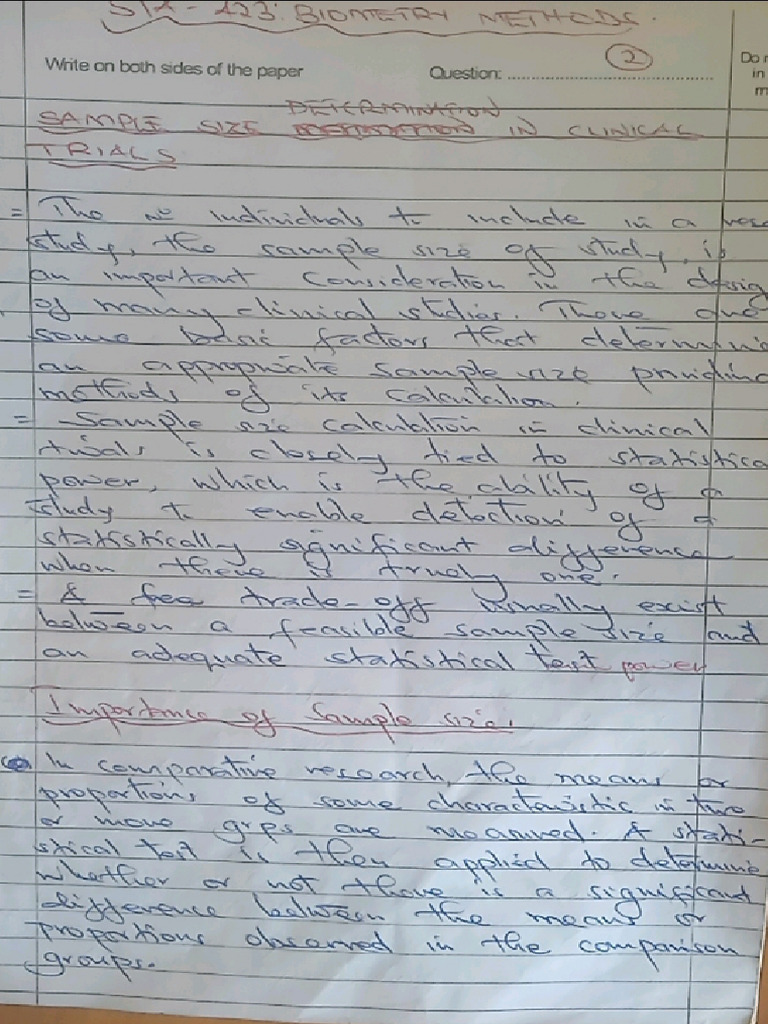 STA - 423: BIOMETRY METHODS.
Write on both sides of the paper Question: ........................ 2 Do
in
m
DETERMINATION
SAMPLE SIZE IN CLINICAL
TRIALS
= The no individuals to include in a
study, the sample size of study, is
an important consideration in the desig
of many clinical studies. There are
some basic factors that determini
an appropriate sample size providing
methods of its calculation.
= - Sample size calculation in clinical
trials is closely tied to statistica
power, which is the ability of a
study to enable detection of a
statistically significant difference
when there is truely one.
= A trade-off usually exist
between a feasible sample size and
an adequate statistical test power
Importance of Sample size.
In comparative research, the means or
proportions of some characteristic in two
or more grps are measured. A stati-
stical test is then applied to determine
whether or not there is a significant
difference between the means or
proportions observed in the comparison
groups.